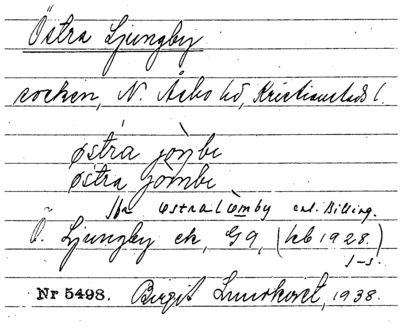 Östra Ljungby
socken, N. Åsbo hd, Kristianstads l.
østra jòŋbe
østra jòmbe
östra lömby enl. Billing.
Ö. Ljungby ek, G9, (kb 1928)
Nr 5498. Birgit 1938.